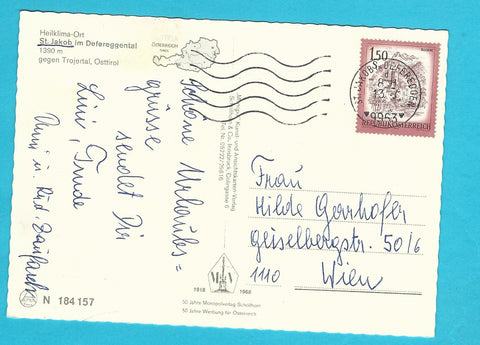 Heilklima-Ort
St. Jakob im Defereggental
1390 m
gegen Trojertal, Osttirol
Schöne Urlaubs=
grüsse
sendet Dir
Lini, Trude
N 184157
Scholhorn & Co. Innsbruck,
1918 1968
50 Jahre Monopolverlag Scholhorn
50 Jahre Werbung für Österreich
1.50
REPUBLIK ÖSTERREICH
ST. JAKOB I. DEFEREGGEN
9963
Frau
Hilde Garhofer
Geiselbergstr. 50/6
1110 Wien